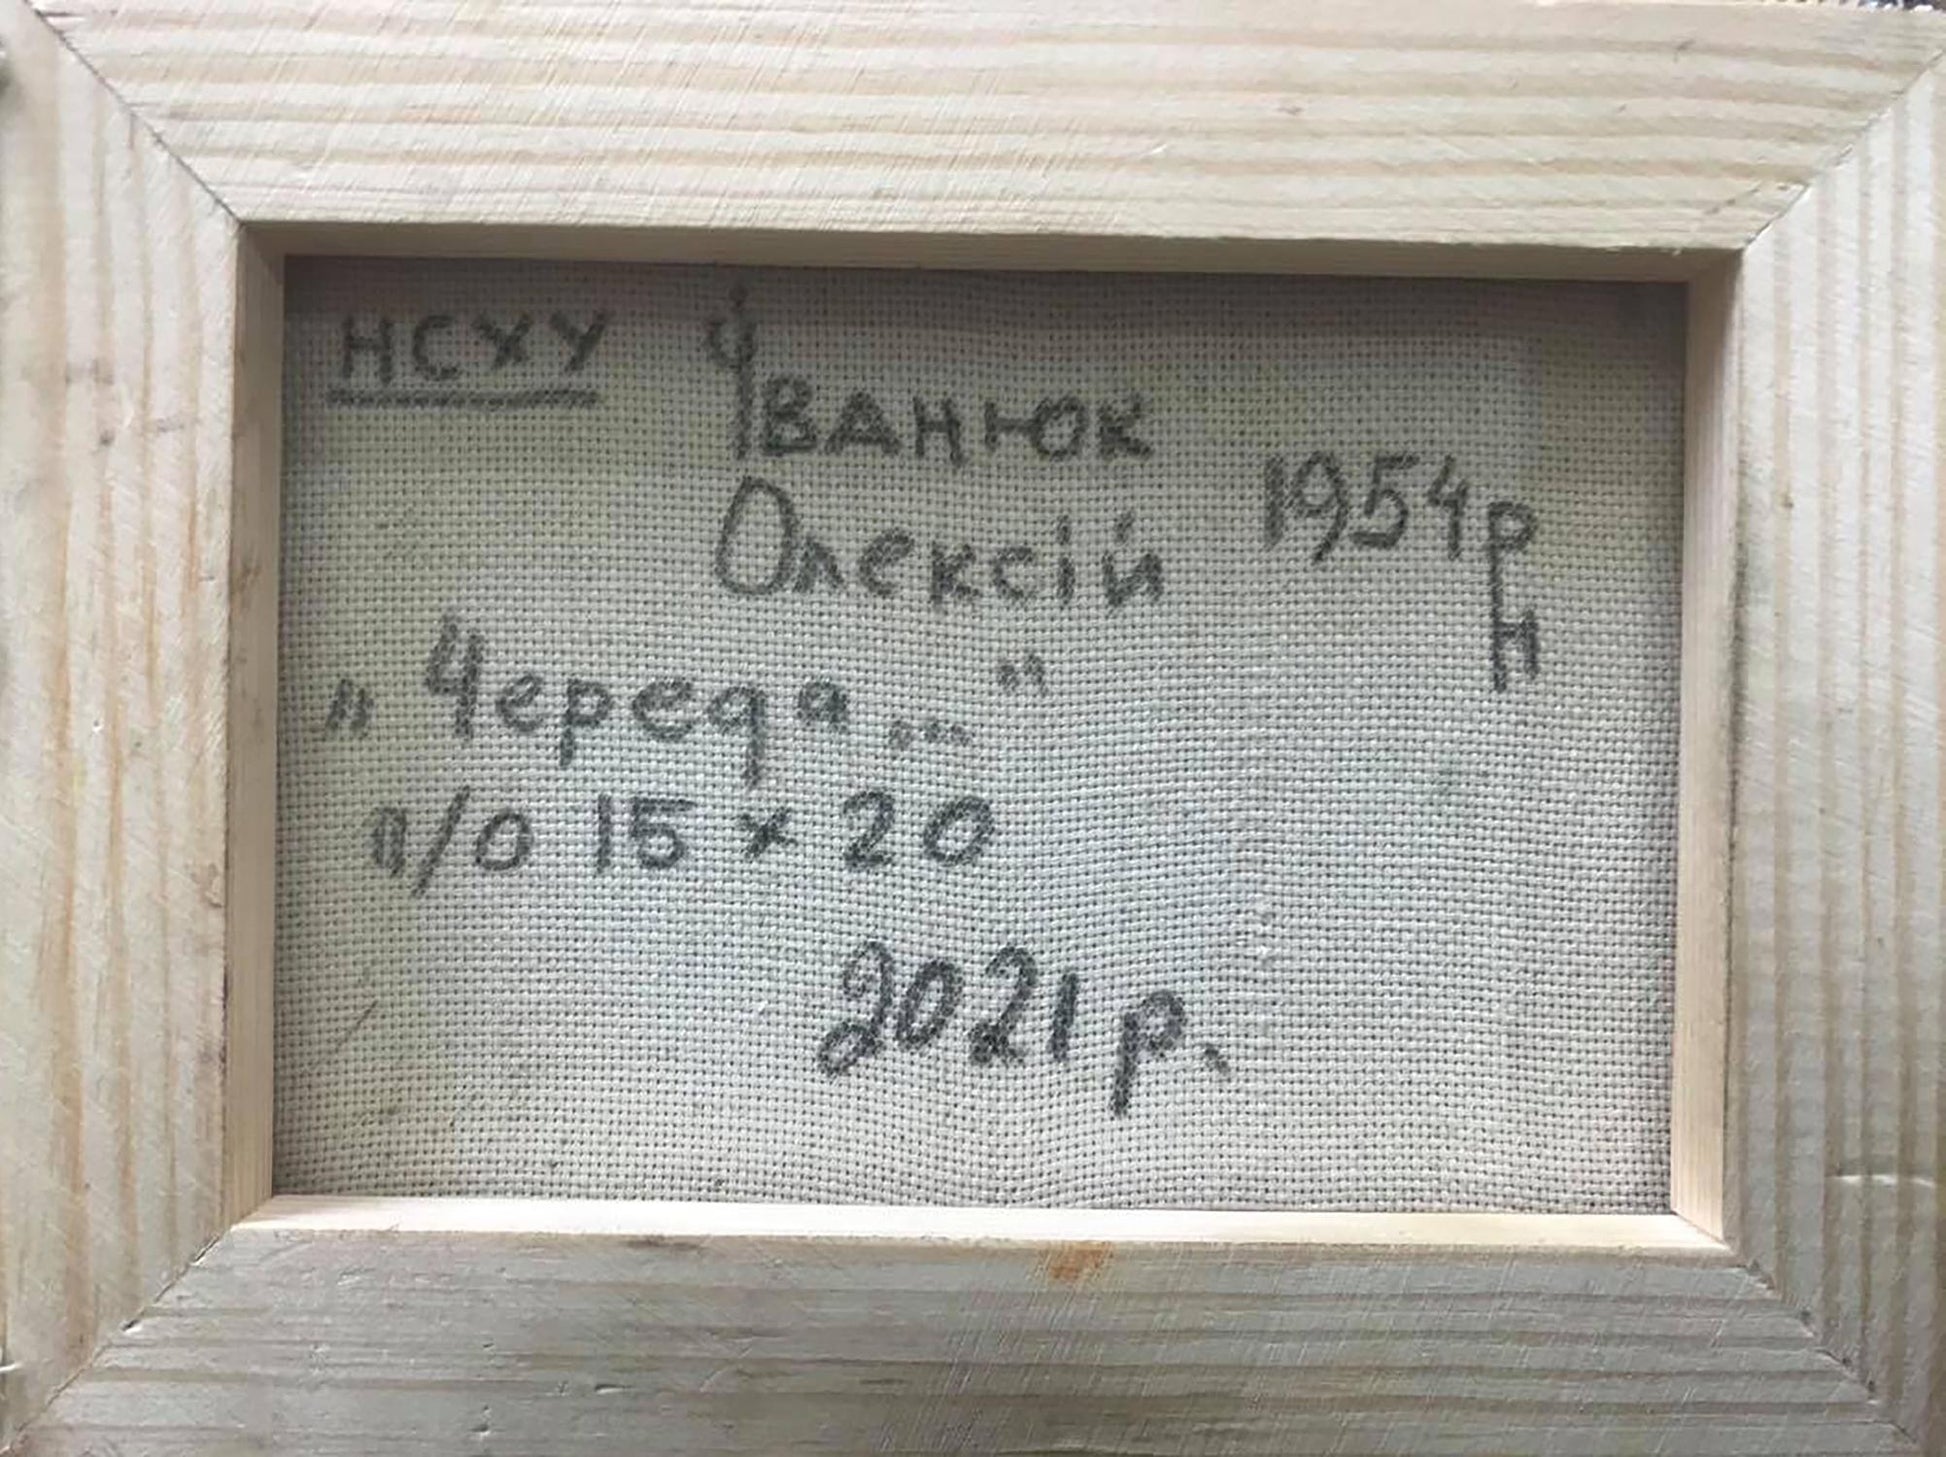 НСХУ Іванюк
Олексій 1954 р
н
„ Череда ... "
п/о 15 х 20
2021 р.